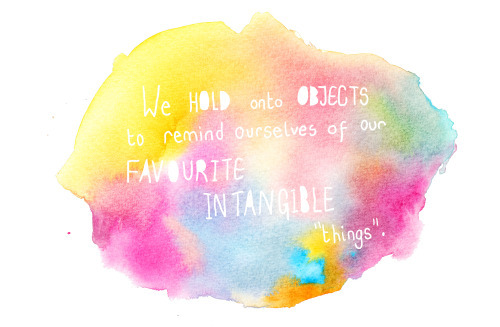 We HOLD onto OBJECTS
to remind ourselves of our
FAVOURITE
INTANGIBLE
"things".